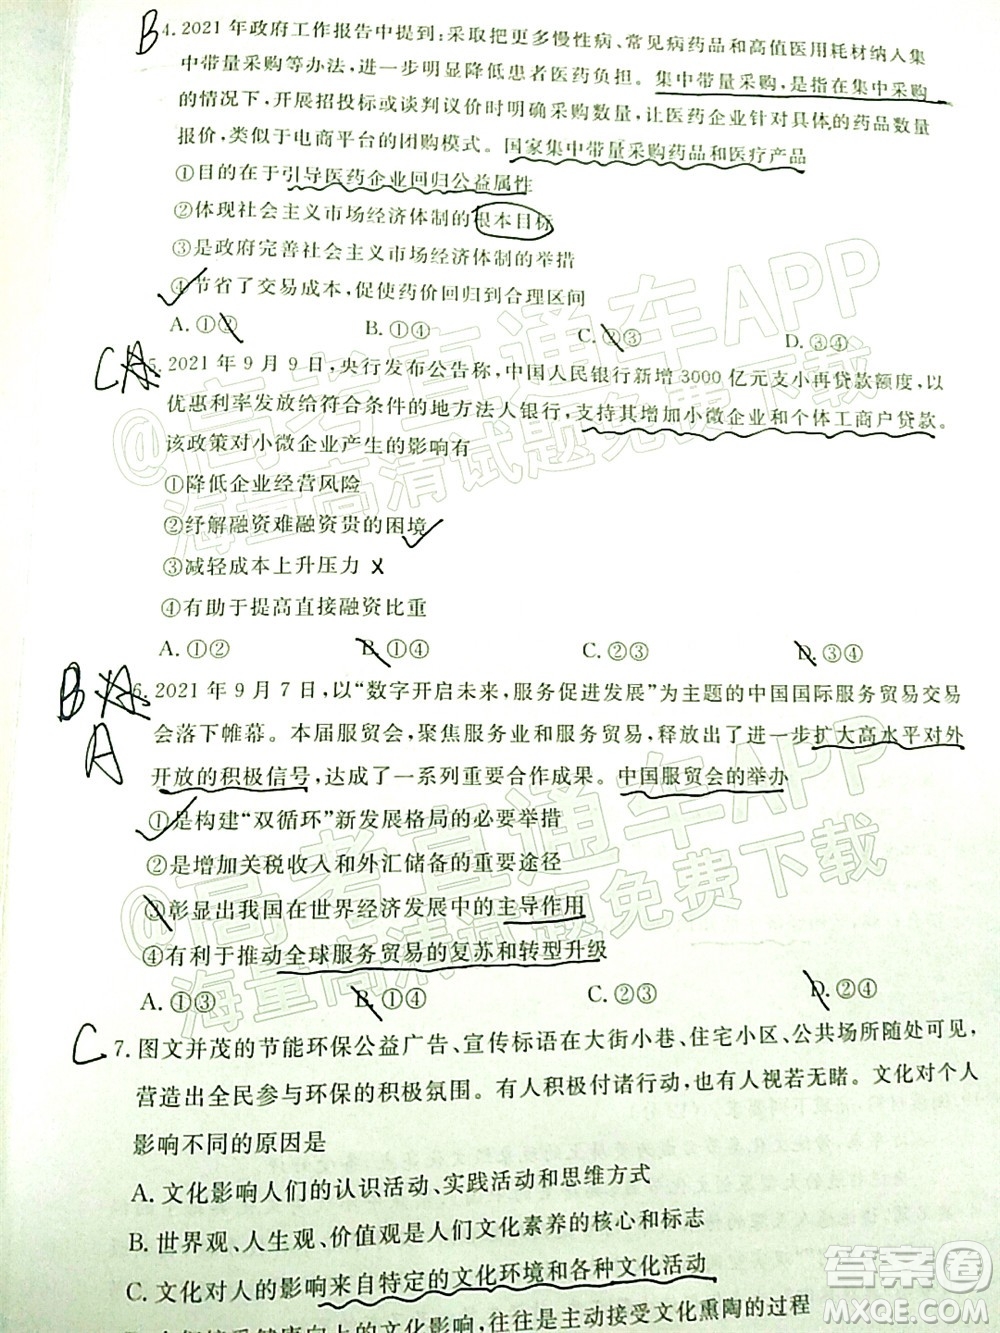 B4. 2021年政府工作报告中提到:采取把更多慢性病、常见病药品和高值医用耗材纳入集
中带量采购等办法,进一步明显降低患者医药负担。集中带量采购,是指在集中采购
的情况下,开展招投标或谈判议价时明确采购数量,让医药企业针对具体的药品数量
报价,类似于电商平台的团购模式。国家集中带量采购药品和医疗产品
①目的在于引导医药企业回归公益属性
②体现社会主义市场经济体制的根本目标
③是政府完善社会主义市场经济体制的举措
④节省了交易成本,促使药价回归到合理区间
A. ①② B. ①④ C. ②③ D. ③④
C A 5. 2021年9月9日,央行发布公告称,中国人民银行新增3000亿元支小再贷款额度,以
优惠利率发放给符合条件的地方法人银行,支持其增加小微企业和个体工商户贷款。
该政策对小微企业产生的影响有
①降低企业经营风险
②纾解融资难融资贵的困境
③减轻成本上升压力 x
④有助于提高直接融资比重
A. ①② B. ①④ C. ②③ D. ③④
B A 6. 2021年9月7日,以“数字开启未来,服务促进发展”为主题的中国国际服务贸易交易
A 会落下帷幕。本届服贸会,聚焦服务业和服务贸易,释放出了进一步扩大高水平对外
开放的积极信号,达成了一系列重要合作成果。中国服贸会的举办
①是构建“双循环”新发展格局的必要举措
②是增加关税收入和外汇储备的重要途径
③彰显出我国在世界经济发展中的主导作用
④有利于推动全球服务贸易的复苏和转型升级
A. ①③ B. ①④ C. ②③ D. ②④
C 7. 图文并茂的节能环保公益广告、宣传标语在大街小巷、住宅小区、公共场所随处可见,
营造出全民参与环保的积极氛围。有人积极付诸行动,也有人视若无睹。文化对个人
影响不同的原因是
A. 文化影响人们的认识活动、实践活动和思维方式
B. 世界观、人生观、价值观是人们文化素养的核心和标志
C. 文化对人的影响来自特定的文化环境和各种文化活动
D. 人们接受健康向上的文化影响,往往是主动接受文化熏陶的过程
@高考直通车APP
海量高清试题免费下载
@高考直通车APP
海量高清试题免费下载
答案圈
MXQE.COM